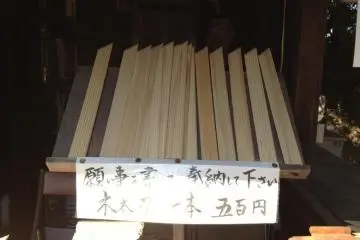 願い事を書き奉納して下さい
木太刀一本五百円